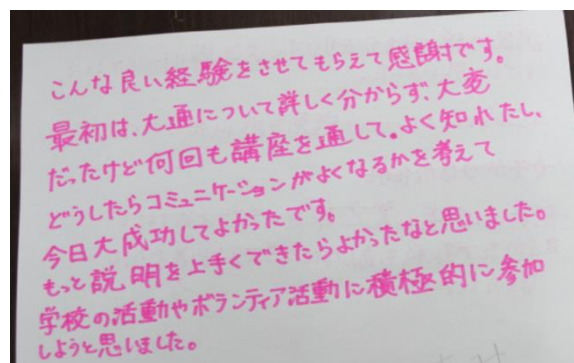 こんな良い経験をさせてもらえて感謝です。
最初は、大通について詳しく分からず、大変
だったけど何回も講座を通して。よく知れたし、
どうしたらコミュニケーションがよくなるかを考えて
今日大成功してよかったです。
もっと説明を上手くできたらよかったなと思いました。
学校の活動やボランティア活動に積極的に参加
しようと思いました。